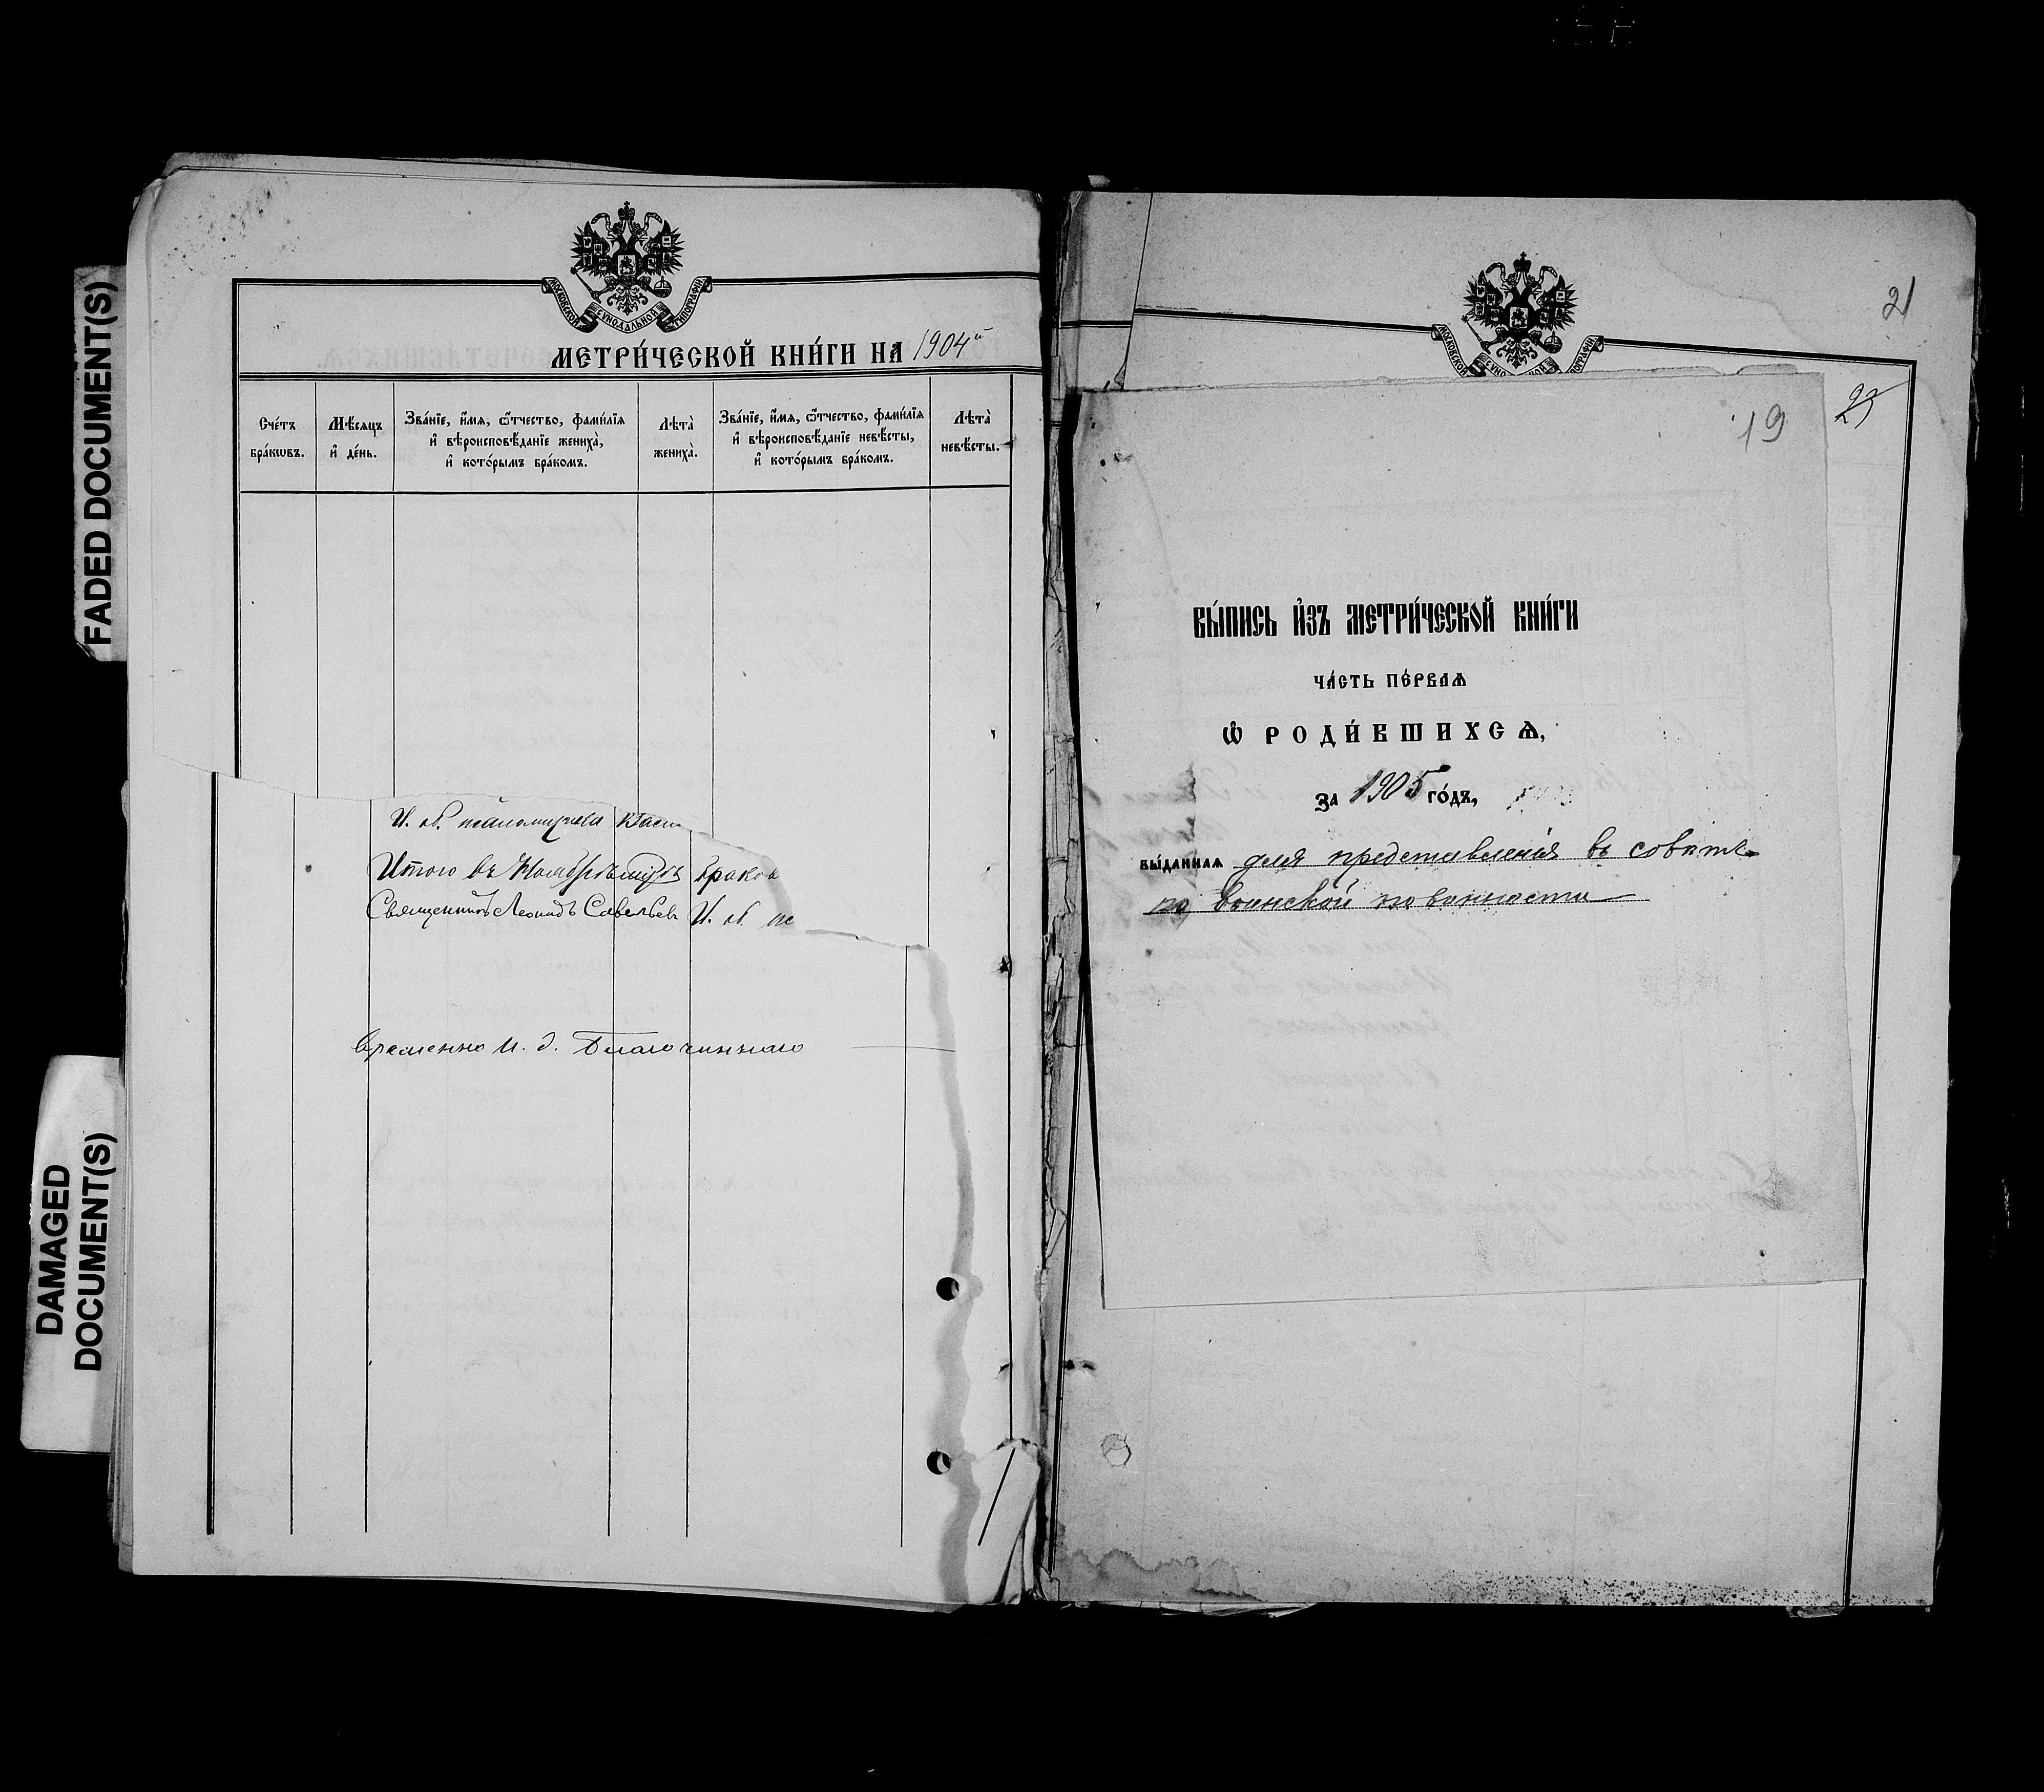 FADED DOCUMENT(S)
DAMAGED
DOCUMENT(S)
МОСКОВСКОЙ СУНОДАЛЬНОЙ ТИПОГРАФІИ
МЕТРИ́ЧЕСКОЙ КНИ́ГИ НА 1904й
Сче́тъ бра́кѡвъ.
Мѣ́сяцъ и҆ де́нь.
Зва́нїе, и҆́мя, ѻ҆́тчество, фами́лїя и҆ вѣроисповѣ́данїе жениха̀, и҆ кото́рымъ бра́комъ.
Лѣта̀ жениха̀.
Зва́нїе, и҆́мя, ѻ҆́тчество, фами́лїя и҆ вѣроисповѣ́данїе невѣ́сты, и҆ кото́рымъ бра́комъ.
Лѣта̀ невѣ́сты.
И. об. псаломщика
Итого въ браков
Священникъ Леонидъ Савельев И. об. пс
Временно И. д. Благочиннаго
21
МОСКОВСКОЙ СУНОДАЛЬНОЙ ТИПОГРАФІИ
23
19
ВЫ́ПИСЬ И҆ЗЪ МЕТРИ́ЧЕСКОЙ КНИ́ГИ
ЧА́СТЬ ПЕ́РВАѦ
Ѡ҆ РОДИ́ВШИХСѦ,
ЗА 1905 ГО́ДЪ,
ВЫ́ДАННАѦ для представленія въ
по воинской повинности